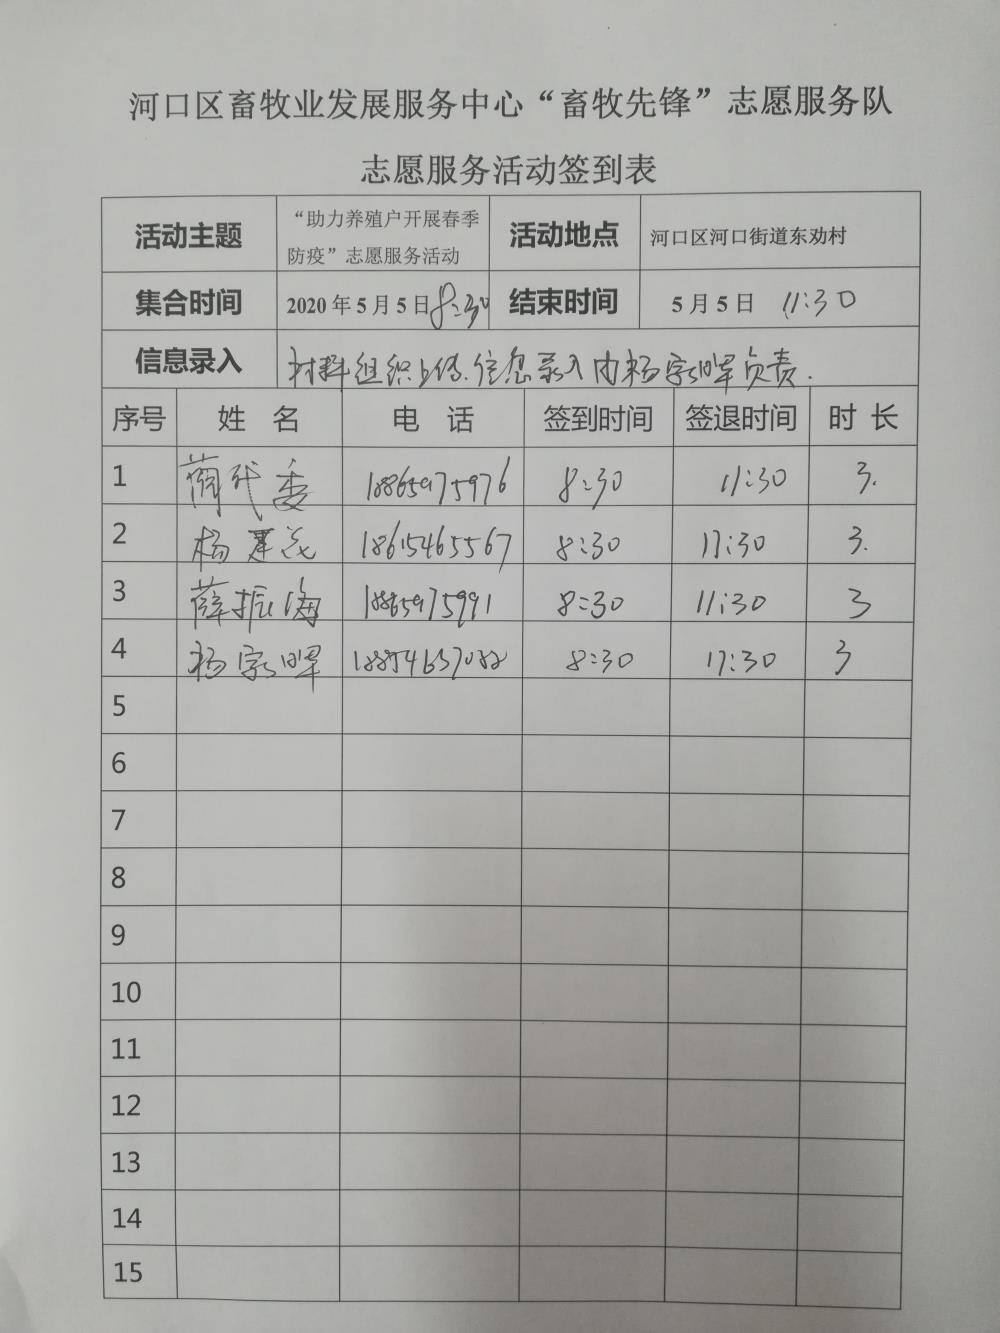 河口区畜牧业发展服务中心“畜牧先锋”志愿服务队
志愿服务活动签到表
活动主题 “助力养殖户开展春季 活动地点 河口区河口街道东劝村
防疫”志愿服务活动
集合时间 2020年5月5日8:30 结束时间 5月5日 11:30
信息录入 材料组织上传.信息录入由杨家晖负责.
序号 姓 名 电 话 签到时间 签退时间 时 长
1 18865975976 8:30 11:30 3.
2 杨 18615465567 8:30 11:30 3.
3 薛振海 18865975991 8:30 11:30 3
4 杨家晖 8:30 11:30 3
5
6
7
8
9
10
11
12
13
14
15